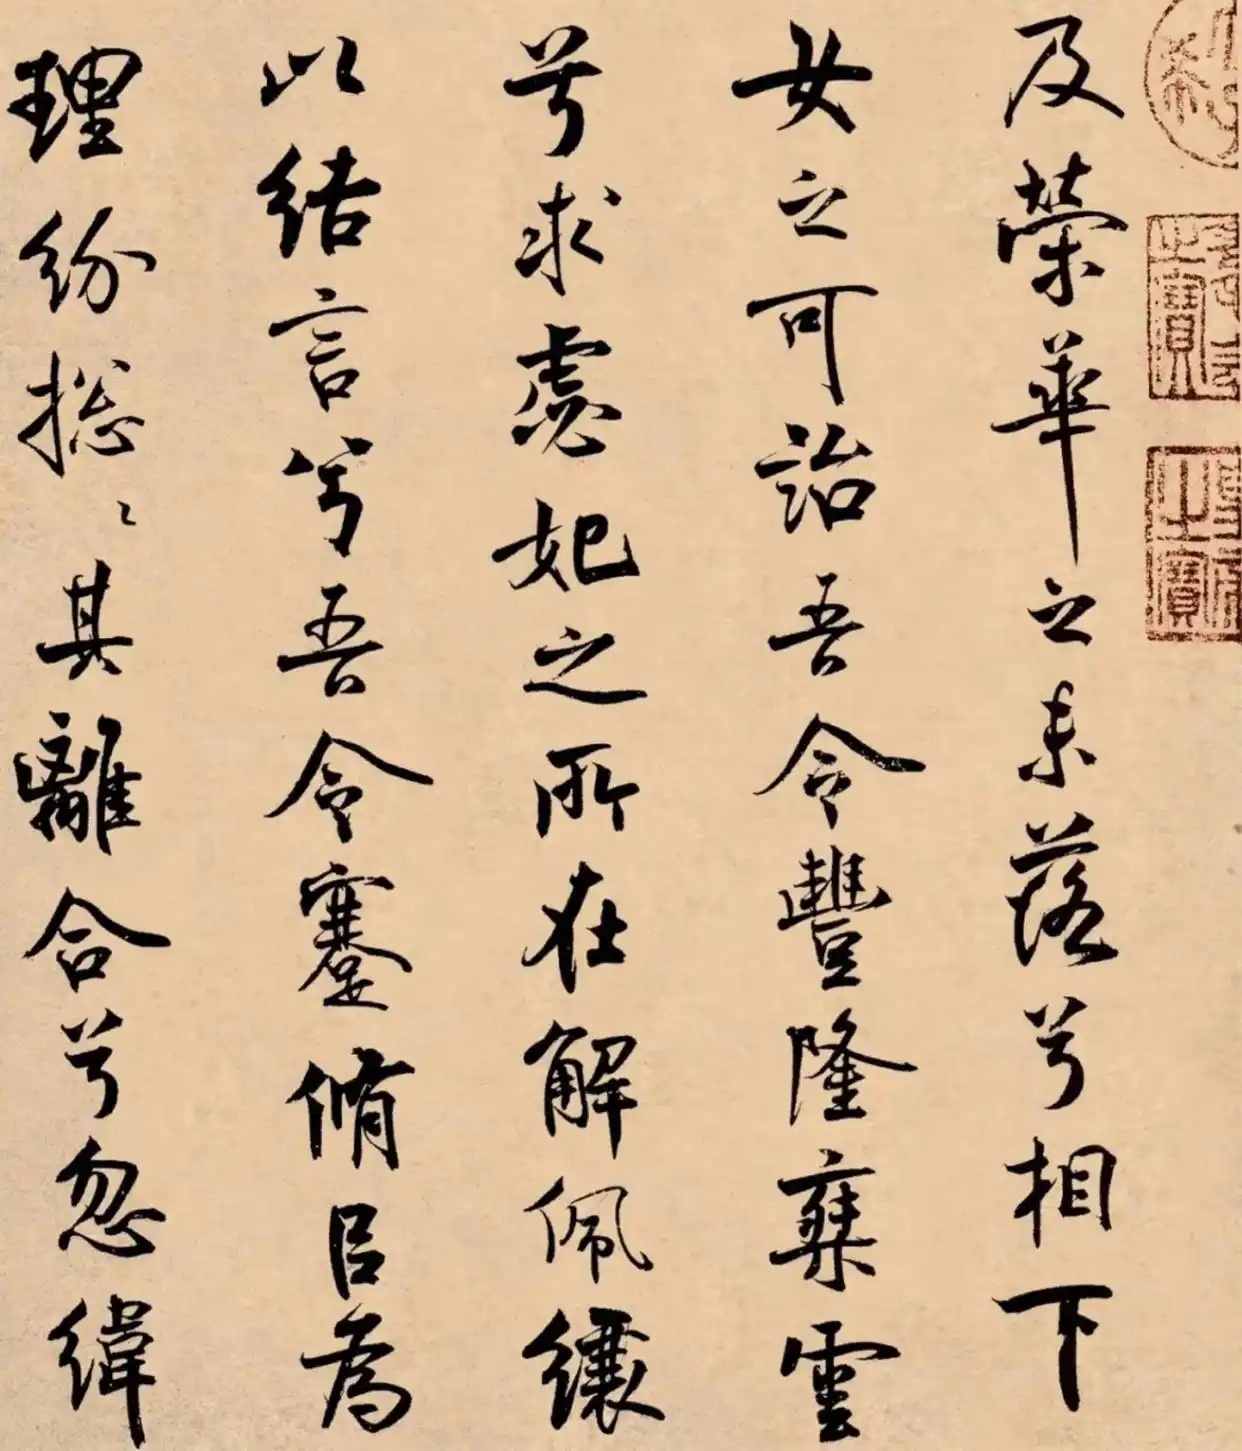 及榮華之未落兮相下
女之可詒吾令豐隆椉雲
兮求虙妃之所在解佩纕
以結言兮吾令蹇脩㠯為
理紛捴〻其離合兮忽緯